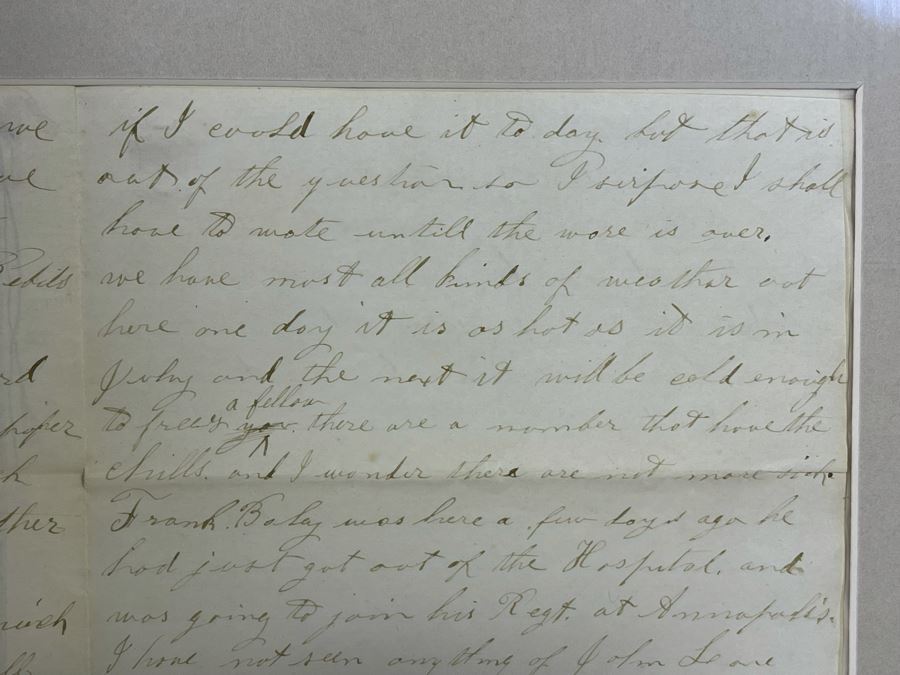 if I could have it to day. but that is
out of the question so I surpose I shall
have to wate untill the wore is over.
we have most all kinds of weather out
here one day it is as hot as it is in
July and the next it will be cold enough
a fellow
to freeze you there are a number that have the
chills. and I wonder there are not more sick.
Frank. Baley was here a few days ago he
had just got out of the Hospital. and
was going to join his Regt. at Annapolis.
I have not seen any thing of John